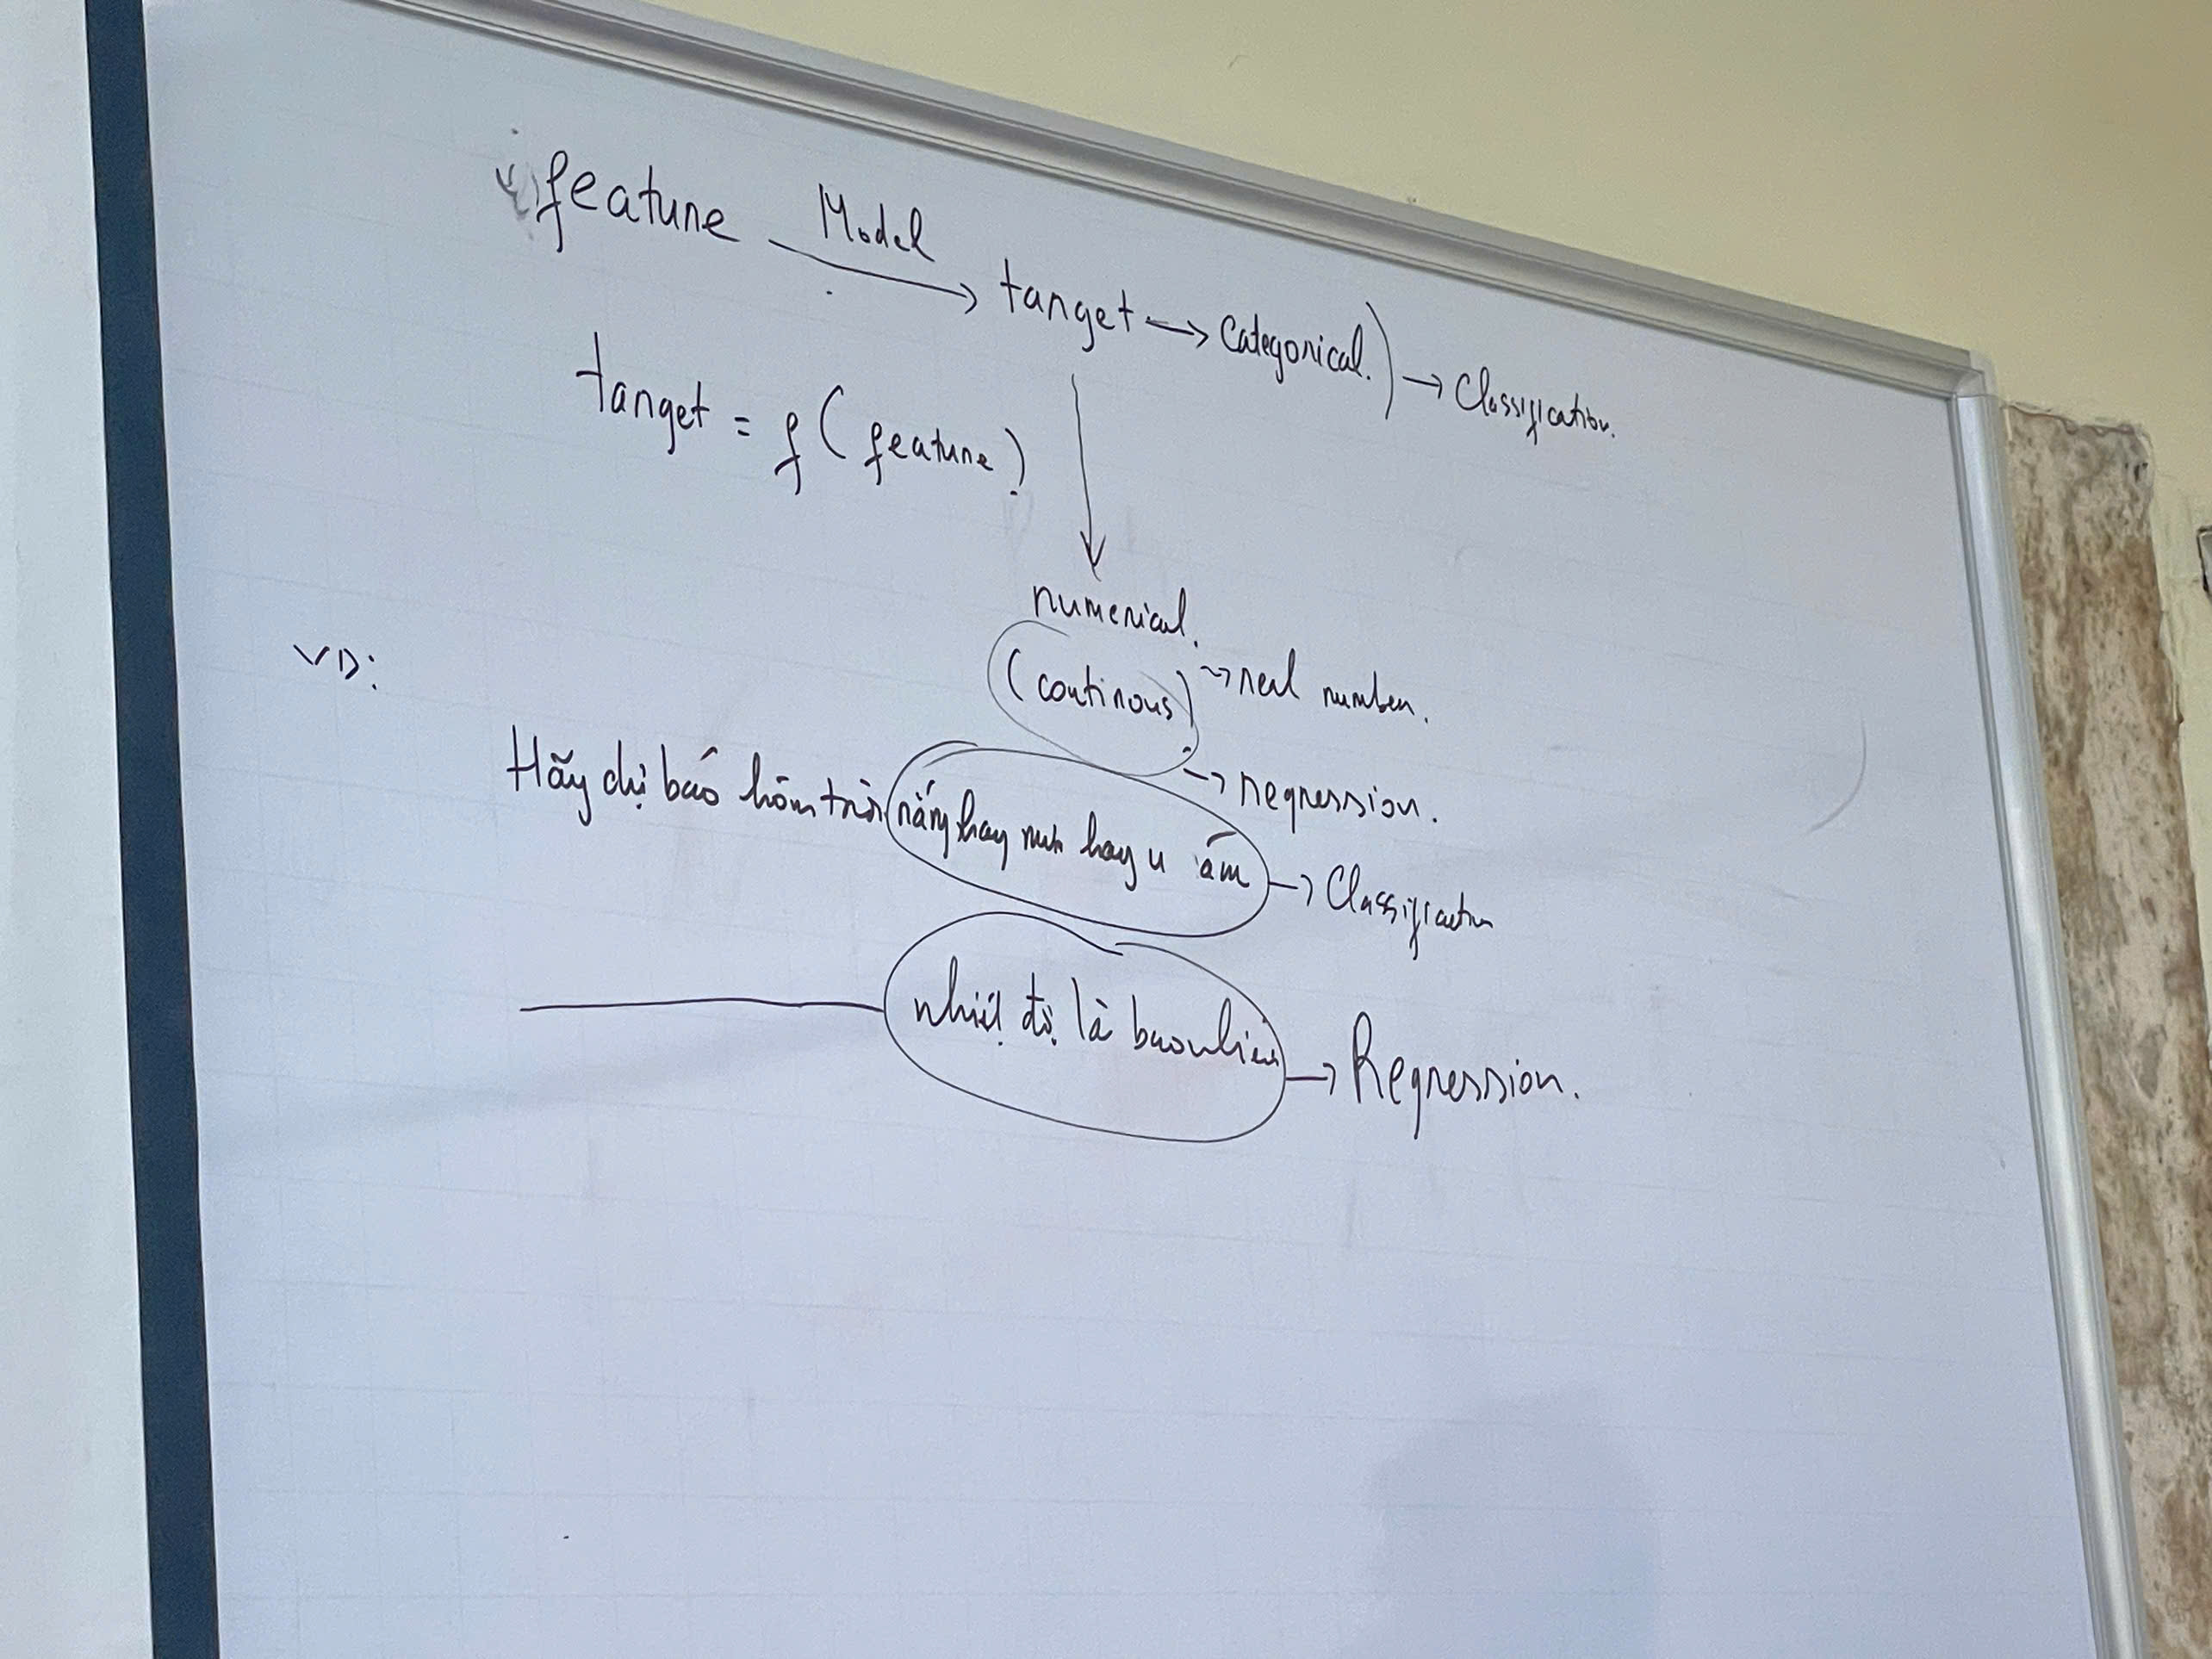 feature Model → target → Categorical.) → Classification.
target = f(feature)
numerical.
(continous) → real number.
→ regression.
VD:
Hãy dự báo hôm trời nắng hay mưa hay u ám → Classification
nhiệt độ là bao nhiêu → Regression.